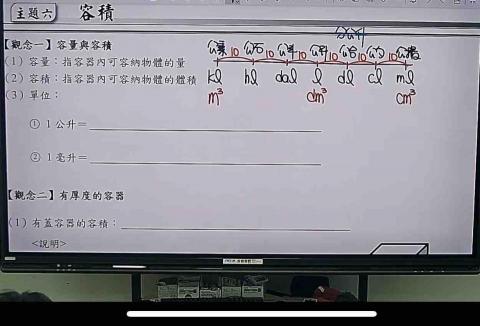 主題六 容積
【觀念一】容量與容積
(1) 容量：指容器內可容納物體的量
(2) 容積：指容器內可容納物體的體積
(3) 單位：
公秉 10 公石 10 公斗 10 公升 10 公合 10 公勺 10 公撮
kl hl dal l dl cl ml
m³ dm³ cm³
① 1 公升=
② 1 毫升=
【觀念二】有厚度的容器
(1) 有蓋容器的容積：
<說明>